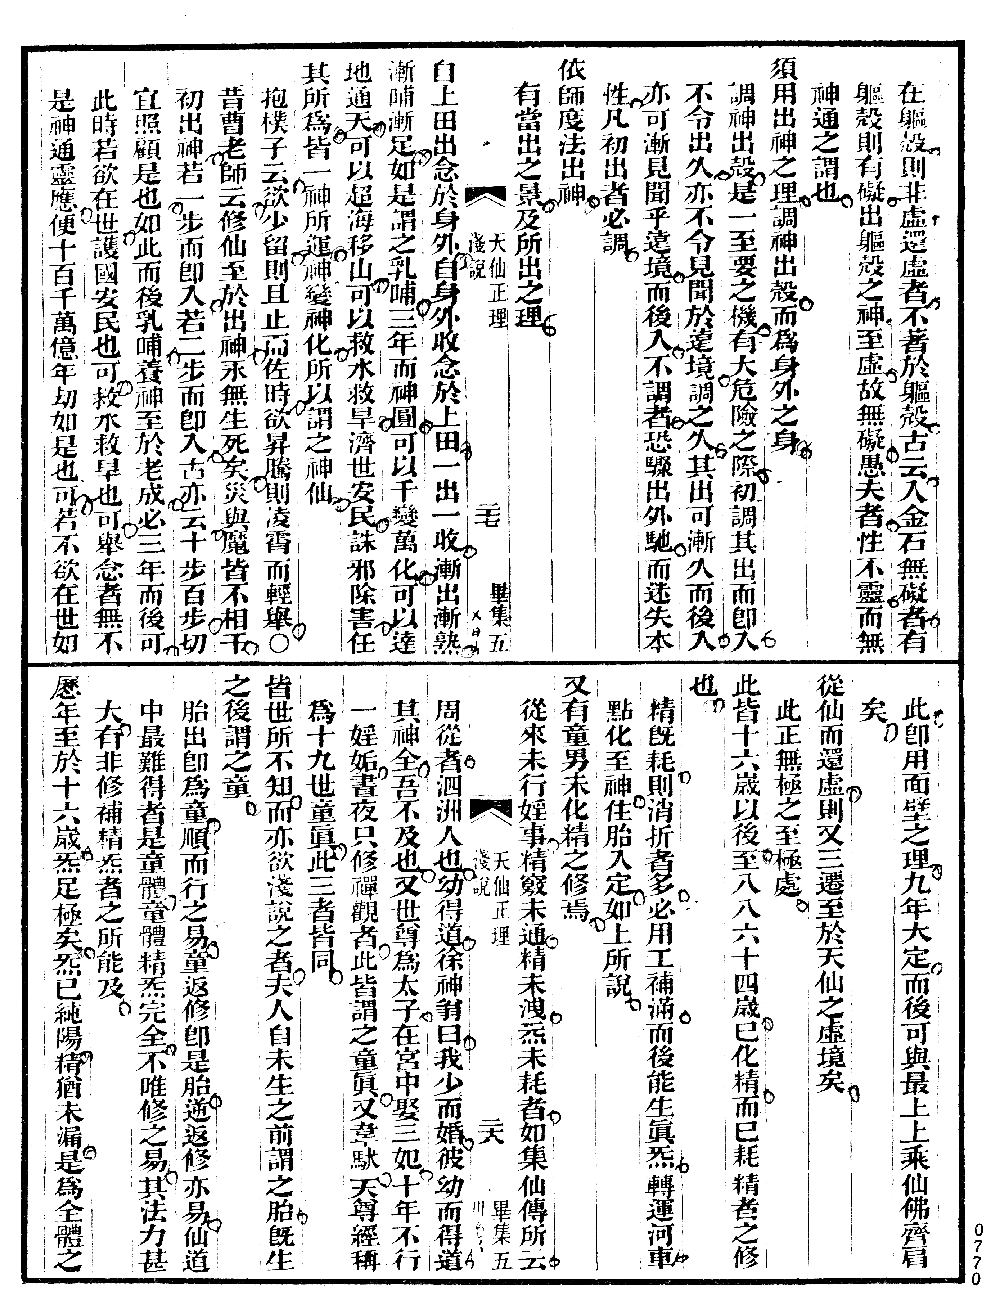 在軀殼則非虛還虛者不著於軀殼古云入金石無礙者有
軀殼則有礙出軀殼之神至虛故無礙愚夫者性不靈而無
神通之謂也
須用出神之理調神出殼而爲身外之身
調神出殼是一至要之機有大危險之際初調其出而卽入
不令出久亦不令見聞於遠境調之久其出可漸久而後入
亦可漸見聞乎遠境而後入不調者恐驟出外馳而迷失本
性凡初出者必調
依師度法出神
有當出之景及所出之理
天仙正理
淺說
二七
畢集五
自上田出念於身外自身外收念於上田一出一收漸出漸熟
漸哺漸足如是謂之乳哺三年而神圓可以千變萬化可以達
地通天可以超海移山可以救水救旱濟世安民誅邪除害任
其所爲皆一神所運神變神化所以謂之神仙
抱樸子云欲少留則且止而佐時欲昇騰則凌霄而輕舉○
昔曹老師云修仙至於出神永無生死矣災與魔皆不相干
初出神若一步而卽入若二步而卽入古亦云十步百步切
宜照顧是也如此而後乳哺養神至於老成必三年而後可
此時若欲在世護國安民也可救水救旱也可舉念者無不
是神通靈應便十百千萬億年劫如是也可若不欲在世如
此卽用面壁之理九年大定而後可與最上上乘仙佛齊肩
矣
從仙而還虛則又三遷至於天仙之虛境矣
此正無極之至極處
此皆十六歲以後至八八六十四歲已化精而已耗精者之修
也
精旣耗則消折者多必用工補滿而後能生眞炁轉運河車
點化至神住胎入定如上所說
又有童男未化精之修焉
從來未行婬事精竅未通精未洩炁未耗者如集仙傳所云
天仙正理
淺說
二八
畢集五
周從者泗洲人也幼得道徐神翁曰我少而婚彼幼而得道
其神全吾不及也又世尊爲太子在宮中娶三妃十年不行
一婬妬晝夜只修禪觀者此皆謂之童眞又韋馱天尊經稱
爲十九世童眞此三者皆同
皆世所不知而亦欲淺說之者夫人自未生之前謂之胎旣生
之後謂之童
胎出卽爲童順而行之易童返修卽是胎逆返修亦易仙道
中最難得者是童體童體精炁完全不唯修之易其法力甚
大有非修補精炁者之所能及
歷年至於十六歲炁足極矣炁已純陽精猶未漏是爲全體之
0770